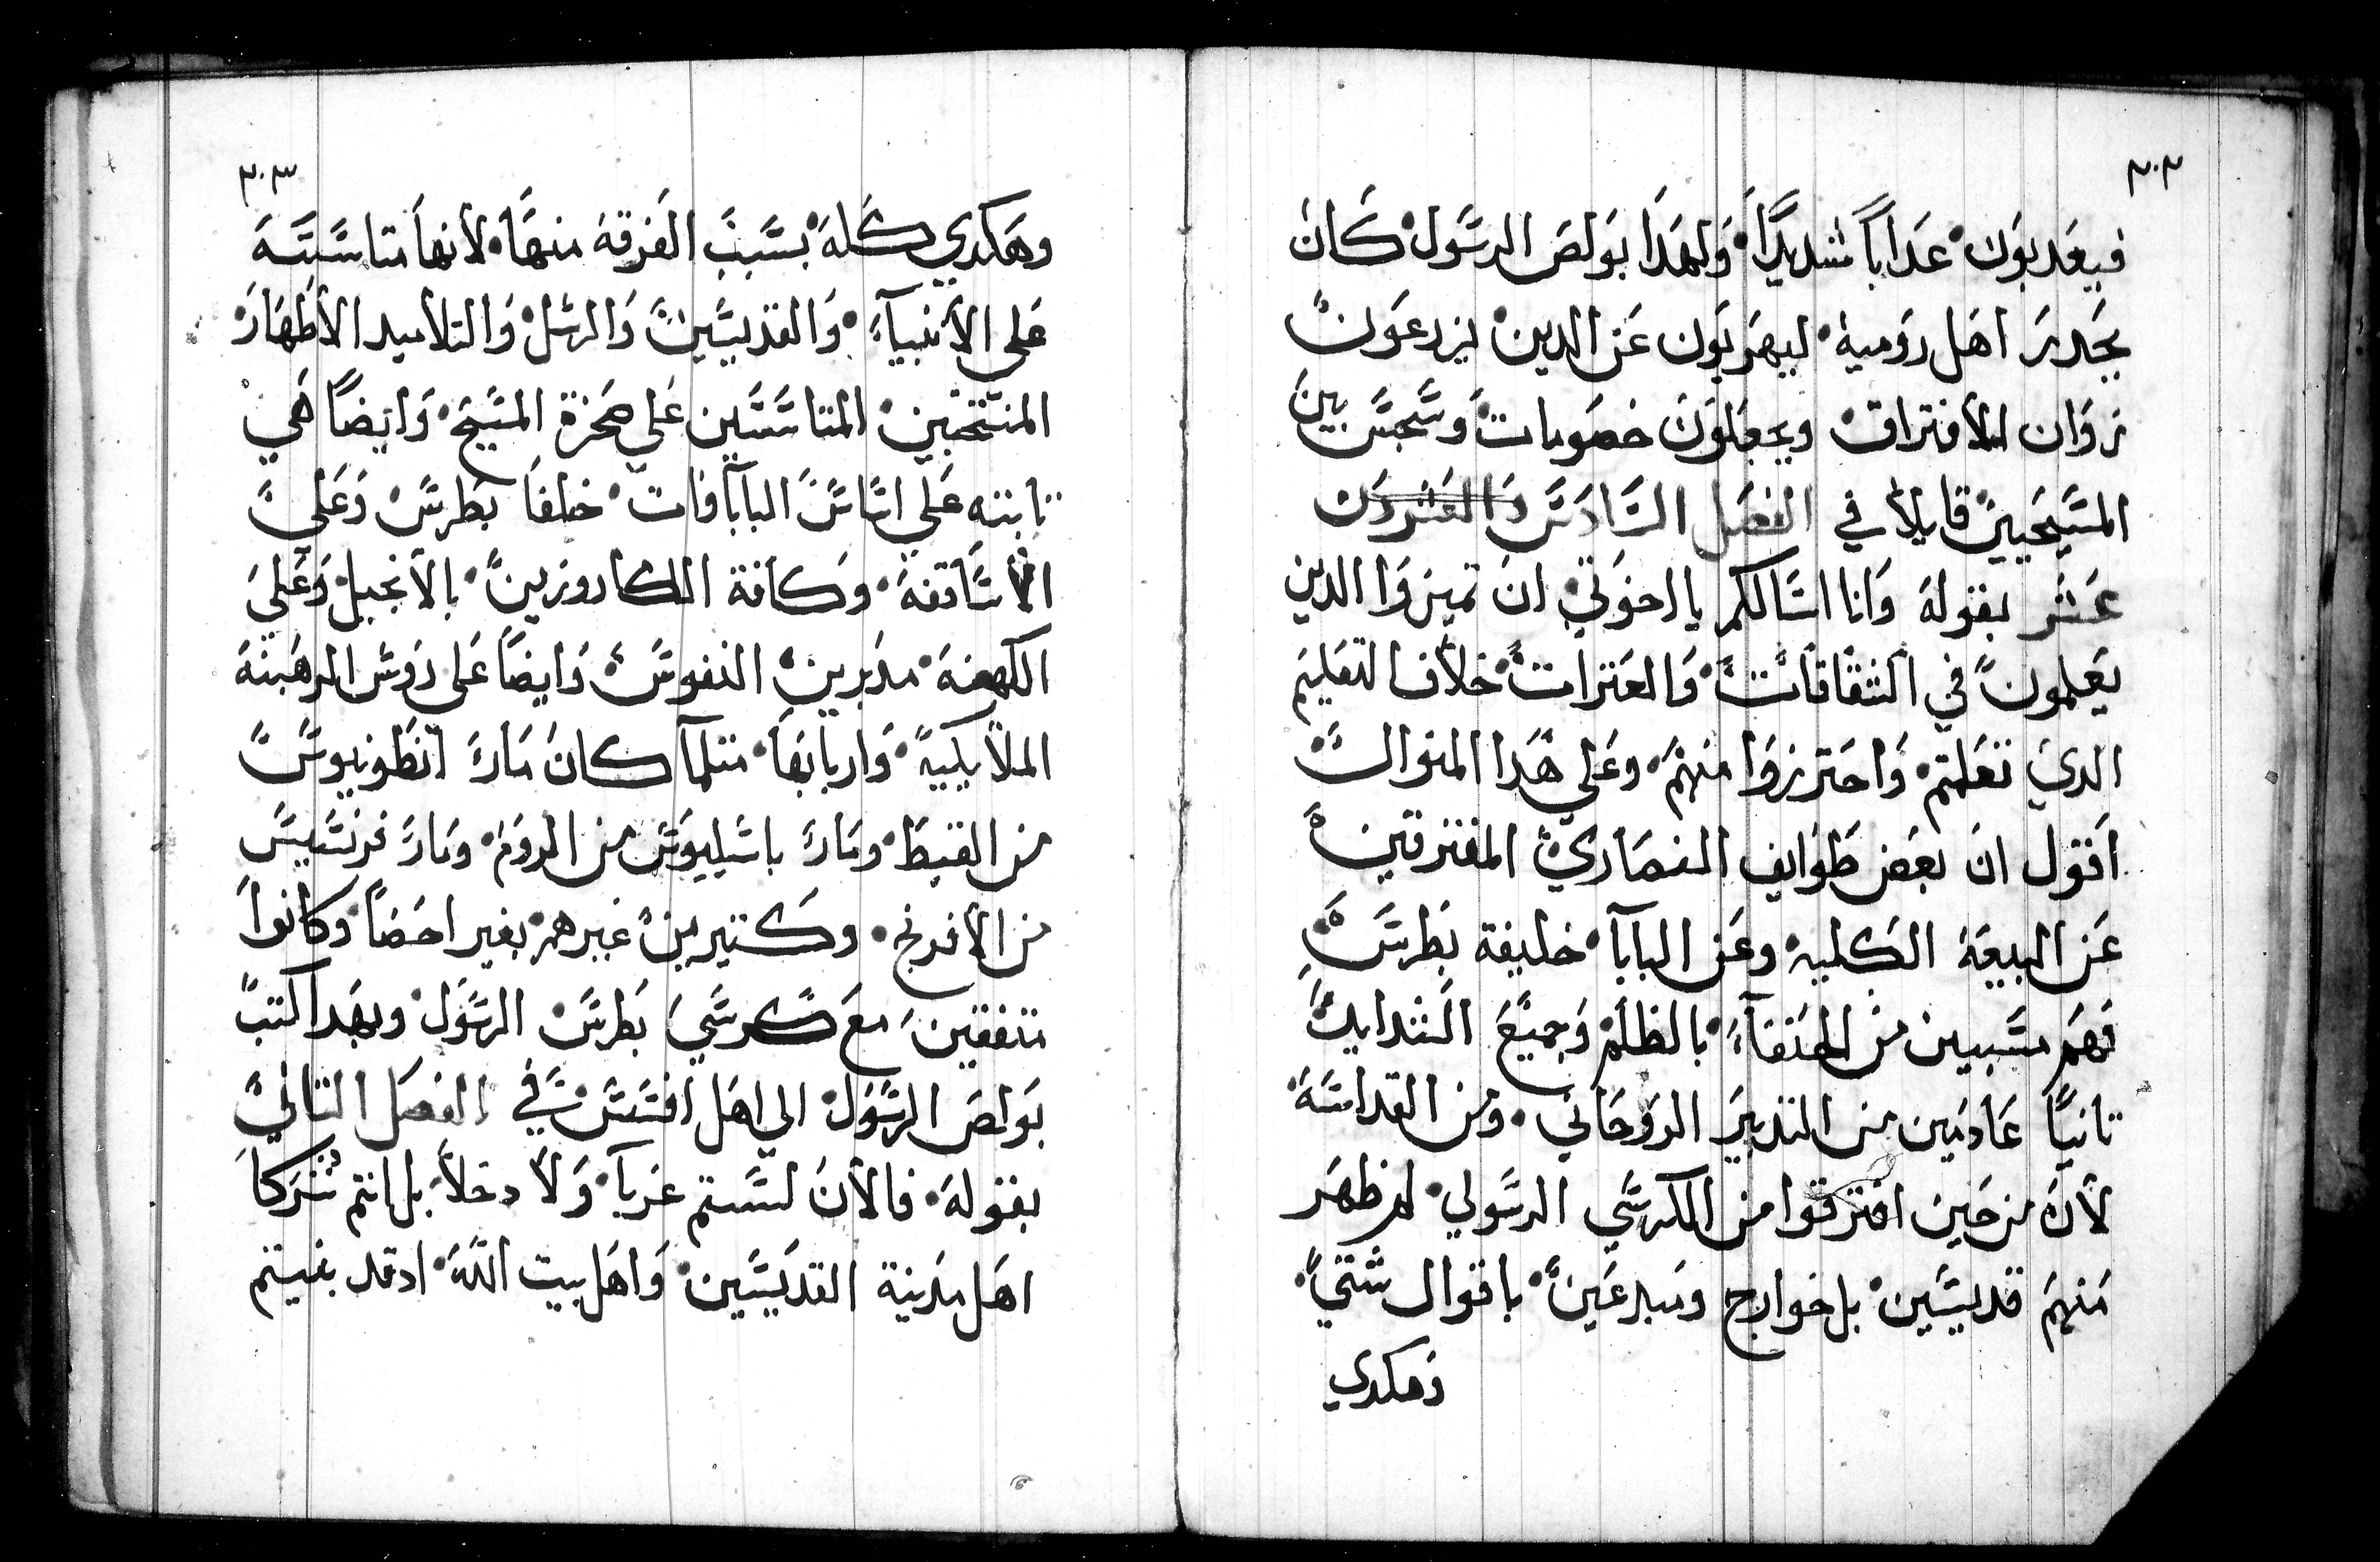 ٣٠٢
فيعدبون عداباً شديداً ولهدا بولص الرسول كان
يحدر اهل رومية ليهربون عن الدين يزرعون
زوان الأفتراق ويجعلون خصومات وسجس بين
المسيحيين قايلاً في الفصل السادس والعشرون
عشر بقوله وانا اسالكم يا اخوتي ان تميزوا الدين
يعلمون في الشقاقات والعترات خلاف التعليم
الدي تعلمتم واحترزوا منهم وعلي هدا المنوال
اقول ان بعض طوايف النصاري المفترقين
عن البيعة الكلية وعن البابا خليفة بطرس
فهم مسبيين من الحنفآء بالظلم وجميع الشدايد
تانياً عادمين من التدبير الروحاني ومن القداسة
لأن من حين افترقوا من الكرسي الرسولي لم ظهر
منهم قديسين بل خوارج ومبدعين باقوال شتي
وهكدي
٣٠٣
وهكدي كله بسبب الفرقة منها لأنها متاسسة
علي الأنبيآء والقديسين والرسل والتلاميد الأطهار
المنتخبين المتاسسين علي صخرة المسيح وايضاً هي
تابته علي اساس البابافات خلفا بطرس وعلي
الأساقفة وكافة الكاروزين بالأنجيل وعلي
الكهنة مدبرين النفوس وايضاً علي روس الرهبنة
الملايكية واربابها متلما كان مار انطونيوس
من القبط ومار باسيليوس من الروم ومار فرنسيس
من الأفرنج وكتيرين غيرهم بغير احصاً وكانوا
متفقين مع كرسي بطرس الرسول وبهدا كتب
بولص الرسول الي اهل افسس في الفصل التاني
بقوله فالأن لستم غربآ ولا دخلاً بل انتم شركا
اهل مدينة القديسين واهل بيت الله ادقد بنيتم